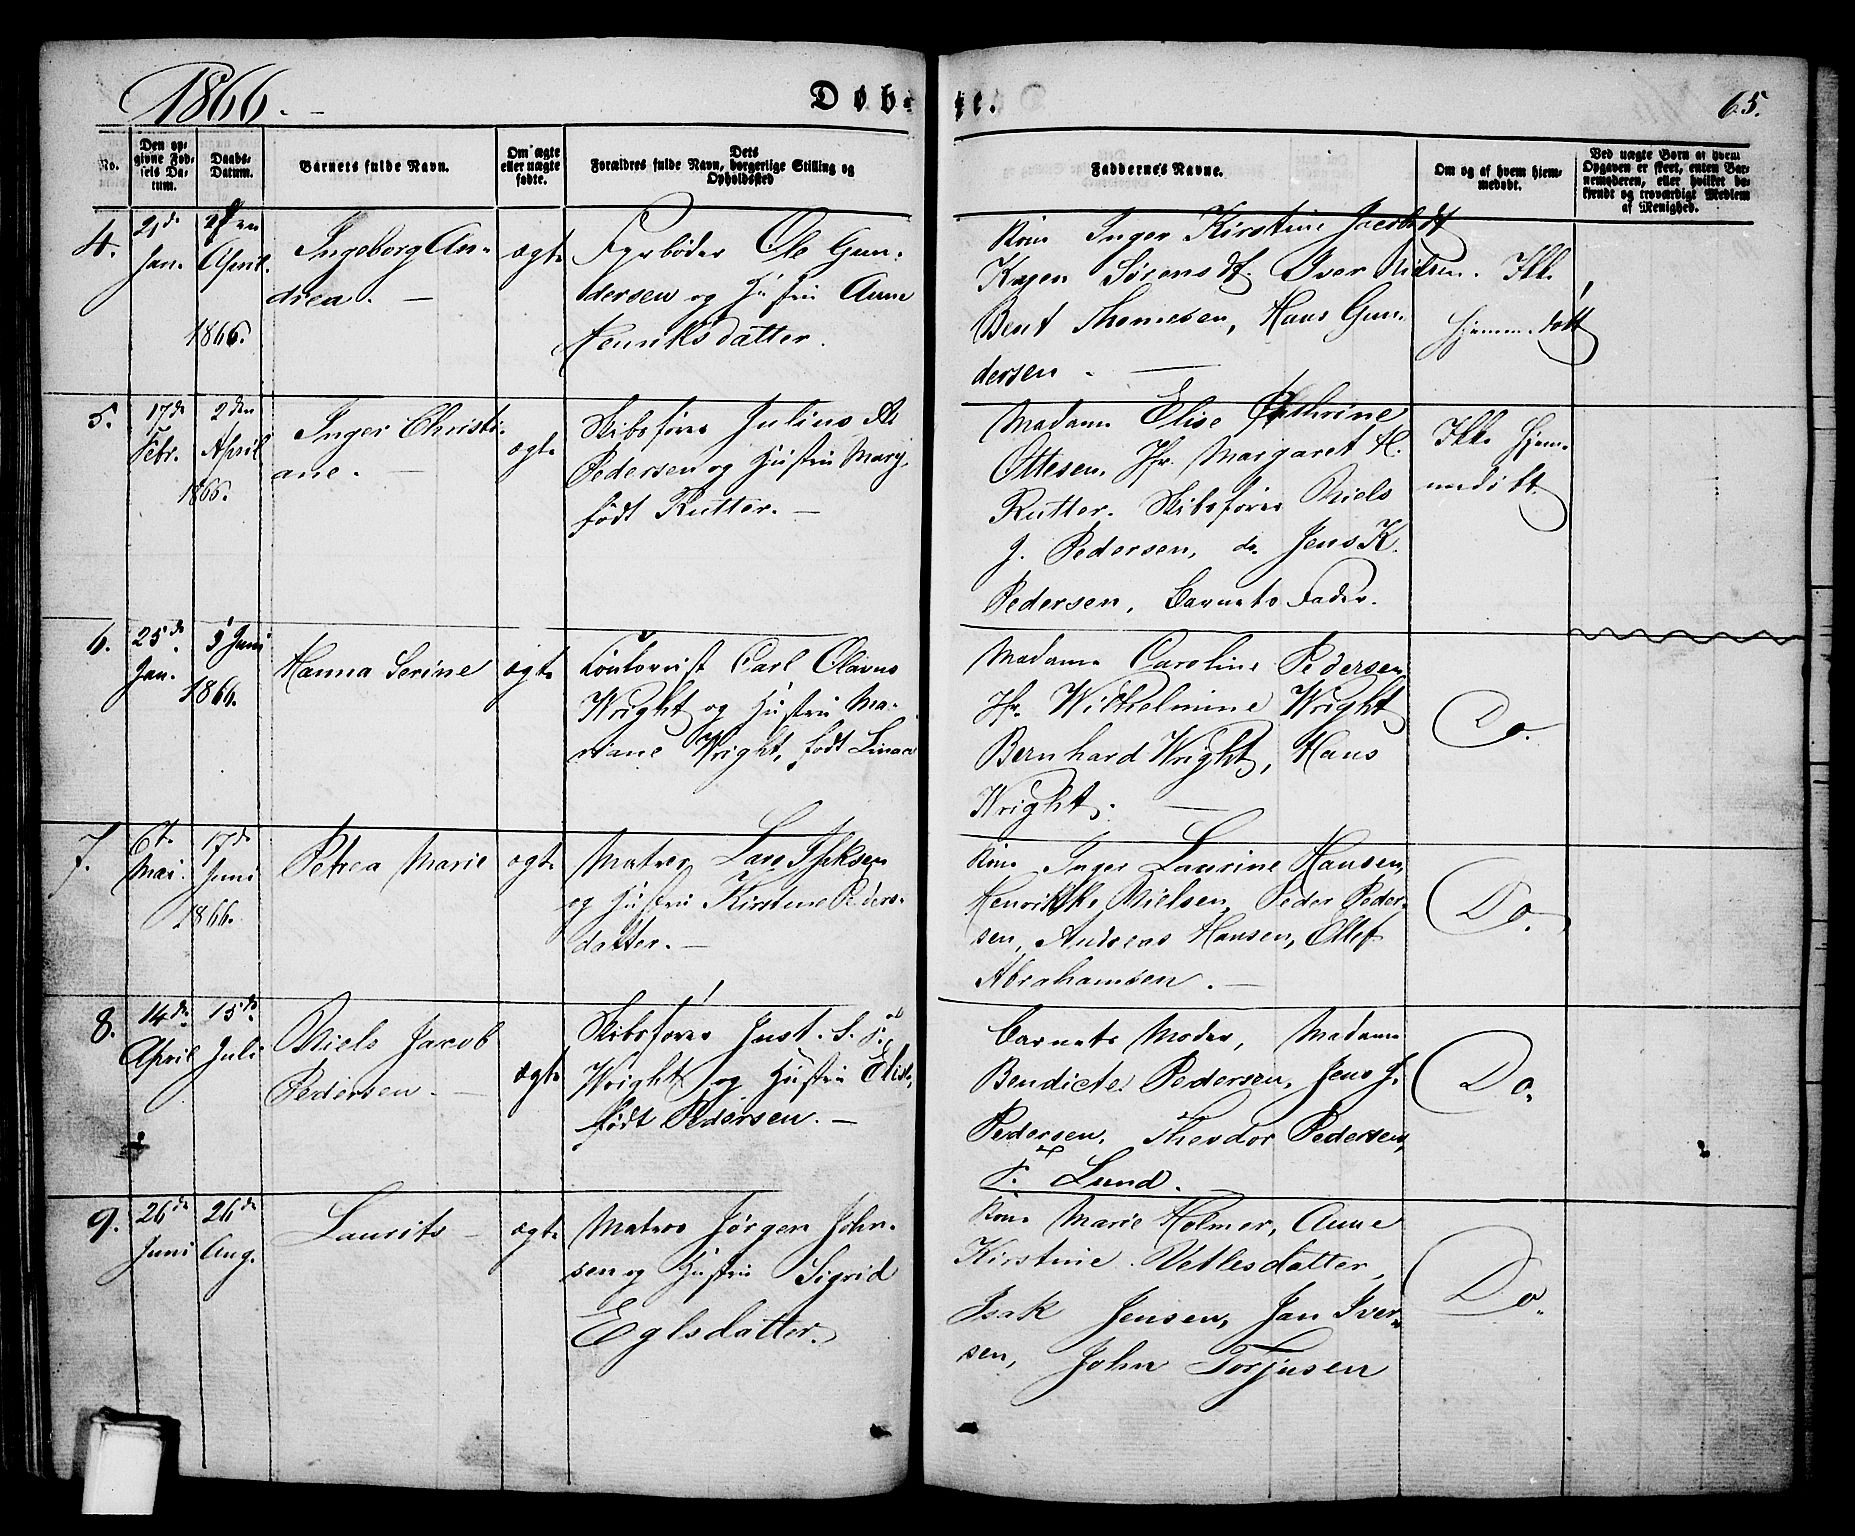 1866.
Døbte.
65.
No.
Den opgivne Fødsels Datum.
Daabs-Datum.
Barnets fulde Navn.
Om ægte eller uægte fødte.
Dets Forældres fulde Navn, borgerlige Stilling og Opholdssted
Faddernes Navne.
Om og af hvem hjemmedøbt.
Ved uægte Børn af hvem Opgaven er skeet, enten Barnemoderen, eller hvilket bekjendt og troværdigt Medlem af Menighed.
4.
2d
Jan.
April
1866.
Ingeborg An-
drea. —
ægte
Fyrbøder Ole Gun-
dersen og Hustru Anne
Henriksdatter.
Kone Inger Kirstine Jacobsdt
Kagen Sørensdt. Iver Nilsen.
Bent Thomesen, Hans Gun-
dersen. —
Ikke
hjemmedøbt
5.
17de
Febr.
2den
April
1866.
Inger Christi-
ane. —
ægte
Skibsfører Julius A.
Pedersen og Hustru Mary,
født Rutter. —
Madame Elise Cathrine
Ottesen, Jfr. Margaret A.
Rutter. Skibsfører Niels
J. Pedersen, do Jens K.
Pedersen, Barnets Fader.
Ikke hjem-
medøbt.
6.
25de
Jan.
Juni
1866.
Hanna Serine
ægte
Contorist Carl Olavus
Wright og Hustru Ma-
riane Wright, født Linaae
Madame Caroline Pedersen
Jfr. Wilhelmine Wright
Bernhard Wright, Hans
Wright. —
Do.
7.
6te
Mai.
17de
Juni
1866.
Petrea Marie
ægte
Matros Lars
og Hustru Kirstine Peders-
datter. —
Kone Inger Laurine Hansen,
Henrikke Nielsen, Peder Peder-
sen, Andreas Hansen, Ellef
Abrahamsen. —
Do.
8.
14de
April
15de
Juli
Niels Jacob
Pedersen. —
ægte
Skibsfører Just. S. F.
Wright og Hustru Elise,
født Pedersen. —
Barnets Moder, Madame
Bendicte Pedersen, Jens J.
Pedersen, Theodor Pedersen,
F. Lund.
Do.
9.
26de
Juni
26de
Aug.
Laurits —
ægte
Matros Jørgen John-
sen og Hustru Sigrid
Eglsdatter.
Kone Marie Holmer, Anne
Kirstine Vetlesdatter,
Isak Jensen, Jan Iver-
sen, John Torjusen
Do.